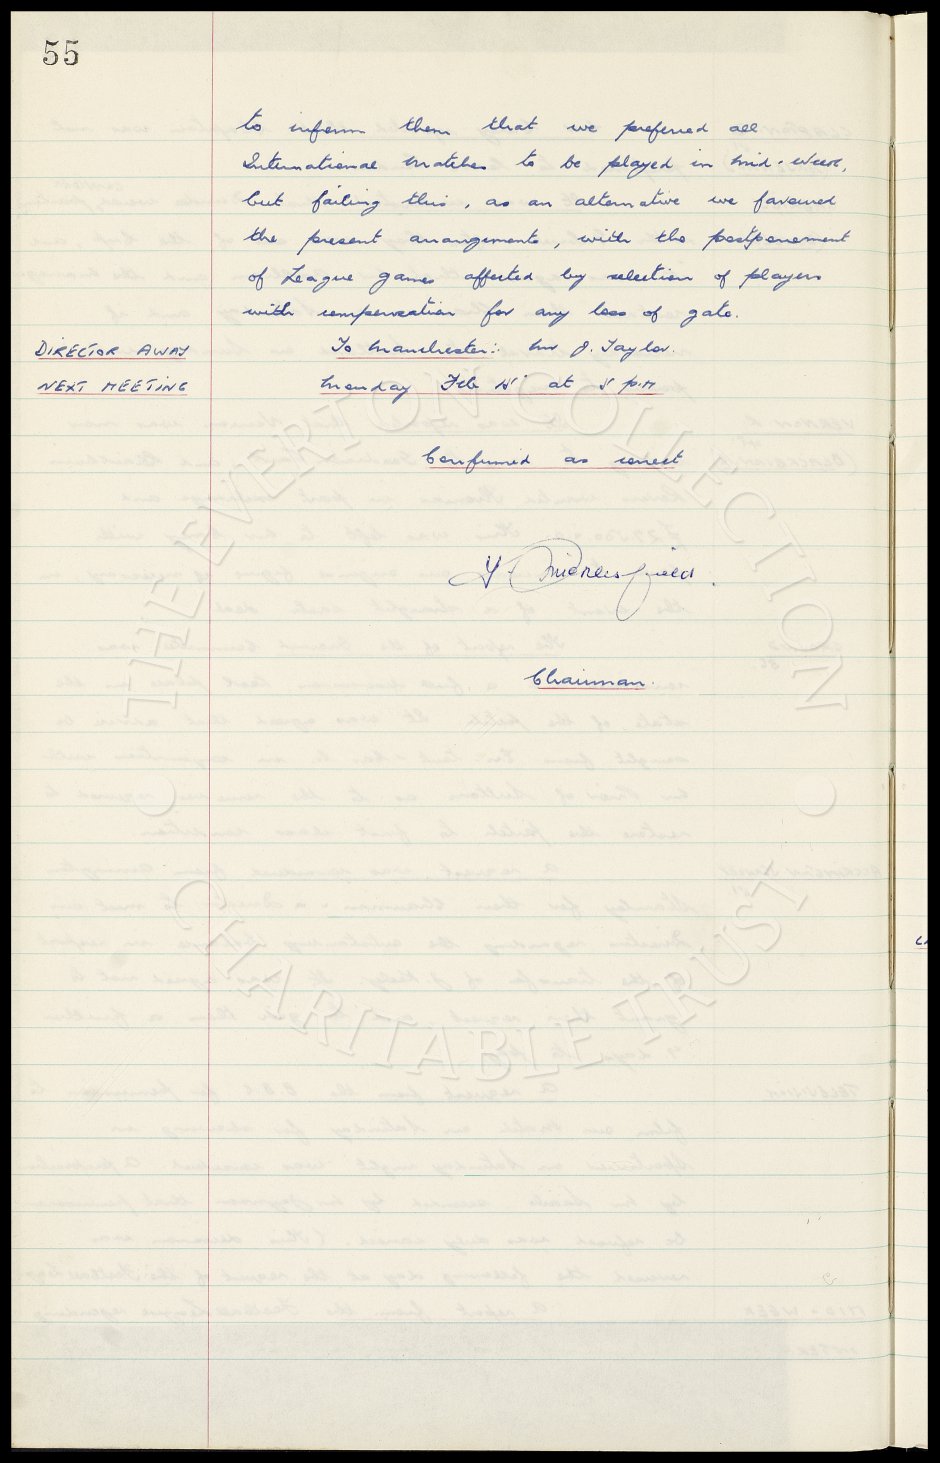 55
to inform them that we preferred all
International matches to be played in mid-week,
but failing this, as an alternative we favoured
the present arrangements, with the postponement
of League games affected by selection of players
with compensation for any loss of gate.
DIRECTOR AWAY To Manchester: Mr J. Taylor.
NEXT MEETING Monday Feb at P.M
Confirmed as correct
Chairman.
THE EVERTON COLLECTION
CHARITABLE TRUST